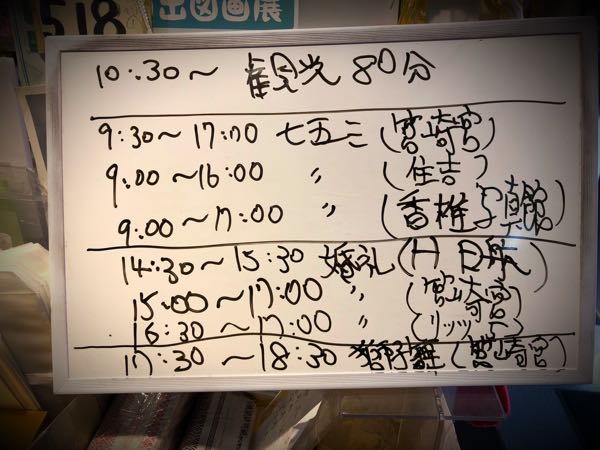 1518
出図画展
10:30〜 観光 80分
9:30〜17:00 七五三(宮崎宮)
9:00〜16:00 〃 (住吉)
9:00〜17:00 〃 (香椎写真館)
14:30〜15:30 婚礼(H日航)
15:00〜17:00 〃 (宮崎宮)
16:30〜17:00 〃 (リッツ)
17:30〜18:30 獅子舞(宮崎宮)